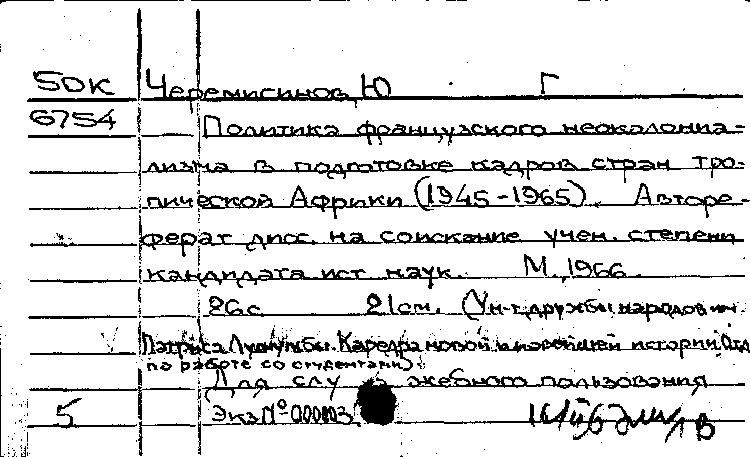 50К Черемисинов, Ю Г
6754 Политика французского неоколониа-
лизма в подготовке кадров стран тро-
пической Африки (1945-1965). Авторе-
ферат дисс. на соискание учен. степени
кандидата ист. наук. М., 1966.
26с. 21см. (Ун-т дружбы народов им.
Патриса Лумумбы. Кафедра новой и новейшей истории. Отд
по работе со студентами).
Для слу жебного пользования
5 Экз № 000003